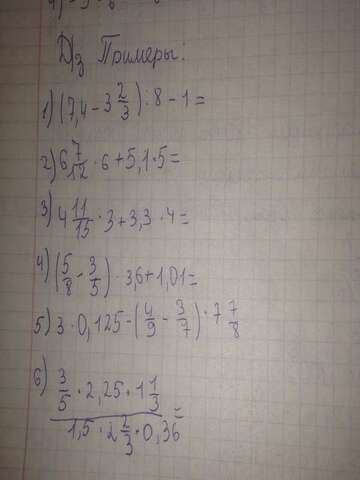 Дз Примеры:
1) (7,4 - 3 2/3) : 8 - 1 =
2) 6 7/12 · 6 + 5,1 · 5 =
3) 4 11/15 · 3 + 3,3 · 4 =
4) (5/8 - 3/5) · 3,6 + 1,01 =
5) 3 · 0,125 - (4/9 - 3/7) · 7 7/8
6) 3/5 · 2,25 · 1 1/3
1,5 · 2 2/3 · 0,36 =